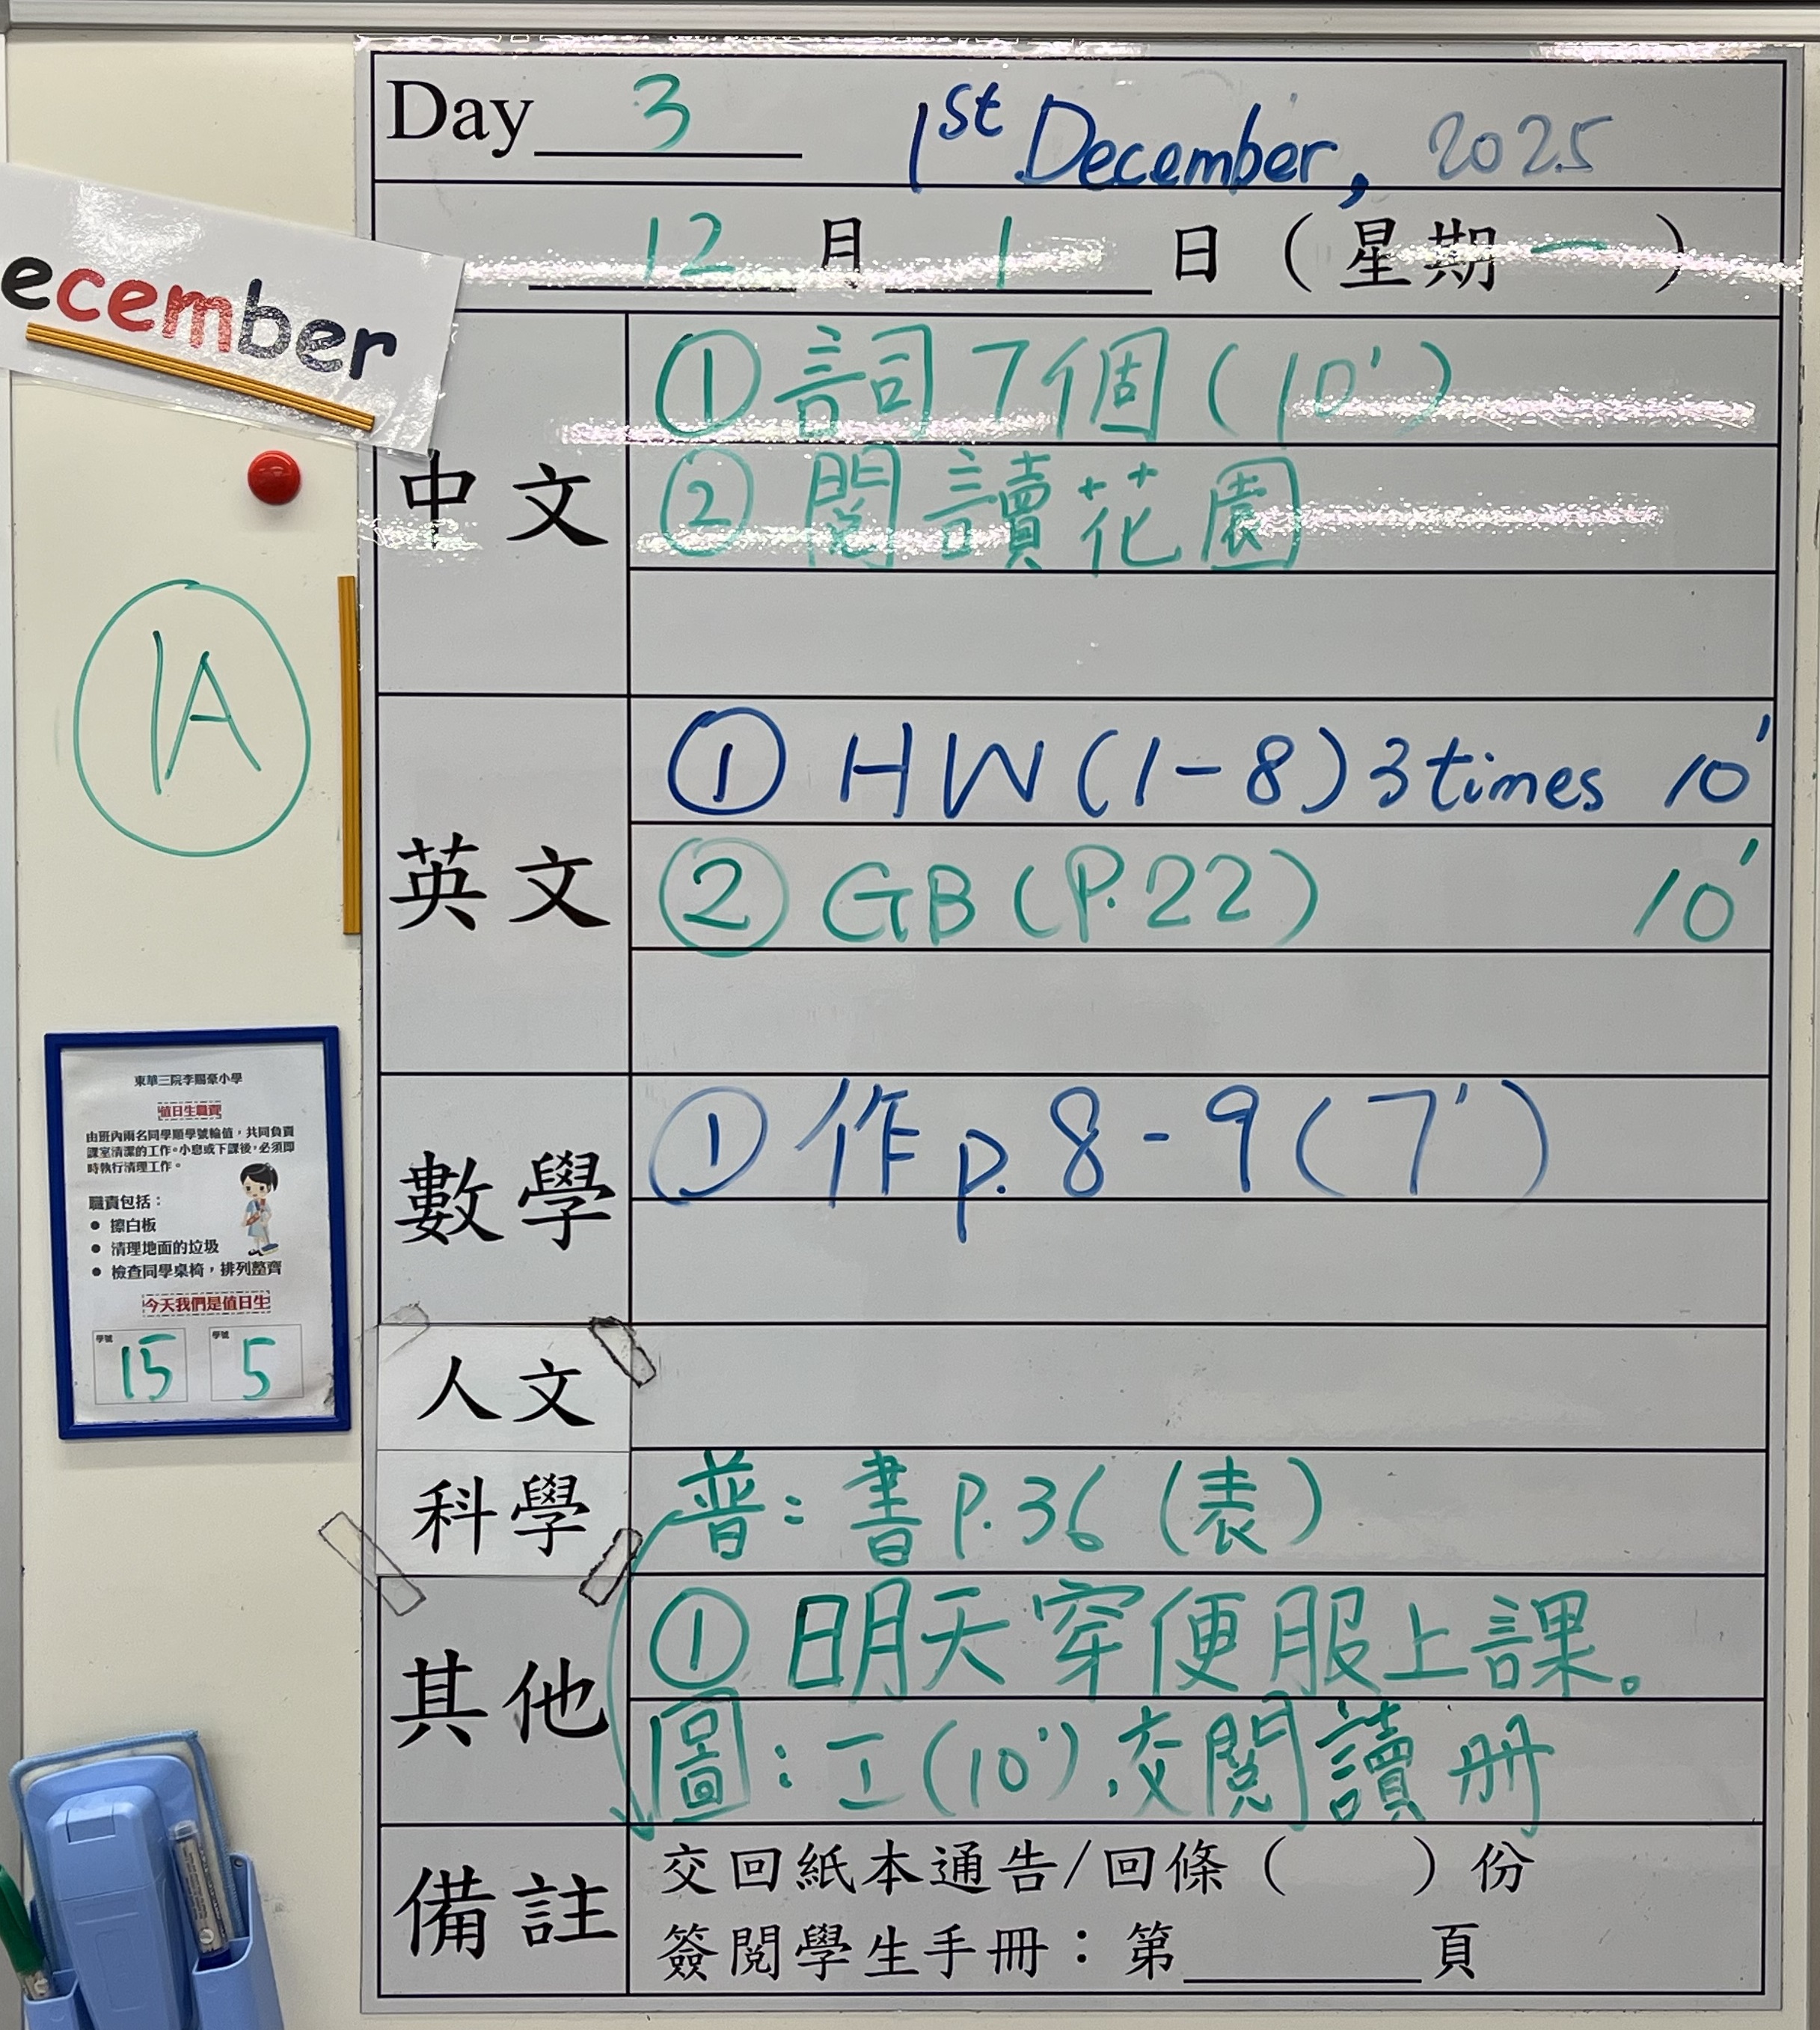 Day 3 1st December, 2025
12 月 1 日 (星期一)
ecember
中文
① 詞7個(10')
② 閱讀花園
1A
英文
① HW(1-8)3times 10'
② GB(P.22) 10'
數學
① 作p.8-9(7')
人文
科學
普:書P.36(表)
其他
① 明天穿便服上課。
圖:工(10'),交閱讀册
備註
交回紙本通告/回條( )份
簽閱學生手冊:第____頁
東華三院李賜豪小學
值日生職責
由班內兩名同學順學號輪值,共同負責
課室清潔的工作。小息或下課後,必須即
時執行清理工作。
職責包括:
● 擦白板
● 清理地面的垃圾
● 檢查同學桌椅,排列整齊
今天我們是值日生
學號 15 學號 5